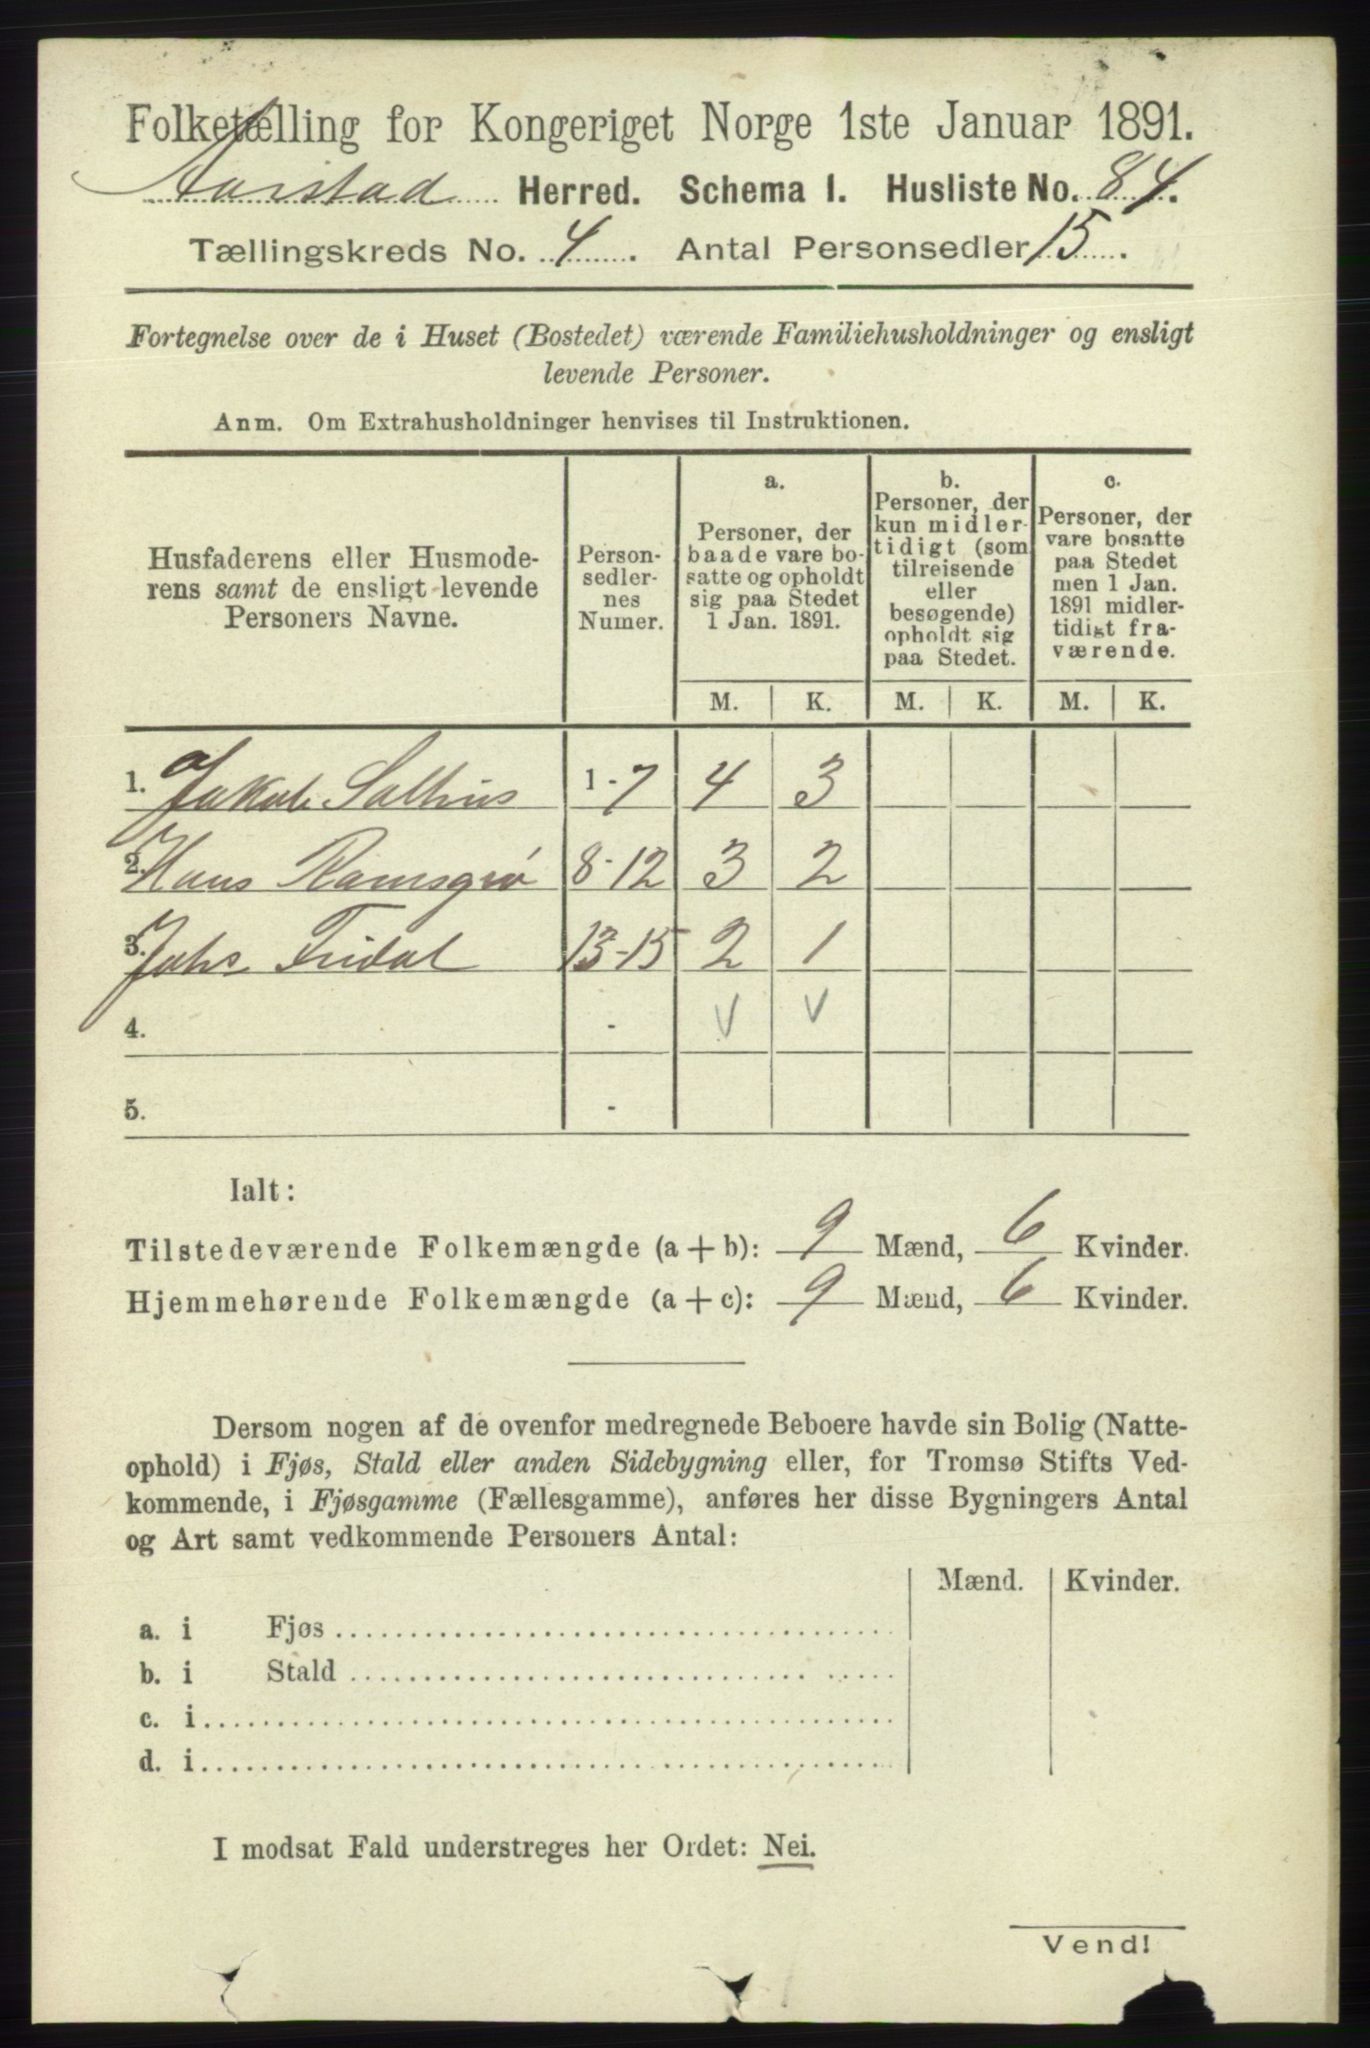 Folketælling for Kongeriget Norge 1ste Januar 1891.
Aarstad Herred. Schema 1. Husliste No. 84.
Tællingskreds No. 4. Antal Personsedler 15.
Fortegnelse over de i Huset (Bostedet) værende Familiehusholdninger og ensligt
levende Personer.
Anm. Om Extrahusholdninger henvises til Instruktionen.
Husfaderens eller Husmode-
rens samt de ensligt levende
Personers Navne.
Person-
sedler-
nes
Numer.
a.
Personer, der
baade vare bo-
satte og opholdt
sig paa Stedet
1 Jan. 1891.
b.
Personer, der
kun midler-
tidigt (som
tilreisende
eller
besøgende)
opholdt sig
paa Stedet.
c.
Personer, der
vare bosatte
paa Stedet
men 1 Jan.
1891 midler-
tidigt fra-
værende.
M. K. M. K. M. K.
1. Jakob 1-7 4 3
2. Hans 8-12 3 2
3. Johs 13-15 2 1
4. - V V
5. -
Ialt:
Tilstedeværende Folkemængde (a+b): 9 Mænd, 6 Kvinder.
Hjemmehørende Folkemængde (a+c): 9 Mænd, 6 Kvinder.
Dersom nogen af de ovenfor medregnede Beboere havde sin Bolig (Natte-
ophold) i Fjøs, Stald eller anden Sidebygning eller, for Tromsø Stifts Ved-
kommende, i Fjøsgamme (Fællesgamme), anføres her disse Bygningers Antal
og Art samt vedkommende Personers Antal:
Mænd. Kvinder.
a. i Fjøs
b. i Stald
c. i
d. i
I modsat Fald understreges her Ordet: Nei.
Vend!